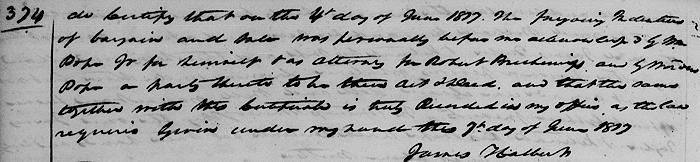 374
do Certify that on the 4th day of June 1817. The foregoing Indenture
of bargain and Sale was personally before me acknowledged by Wm
Pope Jr for himself & as attorney for Robert and by Worden
Pope a party thereto to be their act & deed. and that the same
together with this Certificate is truly Recorded in my office as the law
requires Given under my hand this 7th day of June 1817
James Halbert